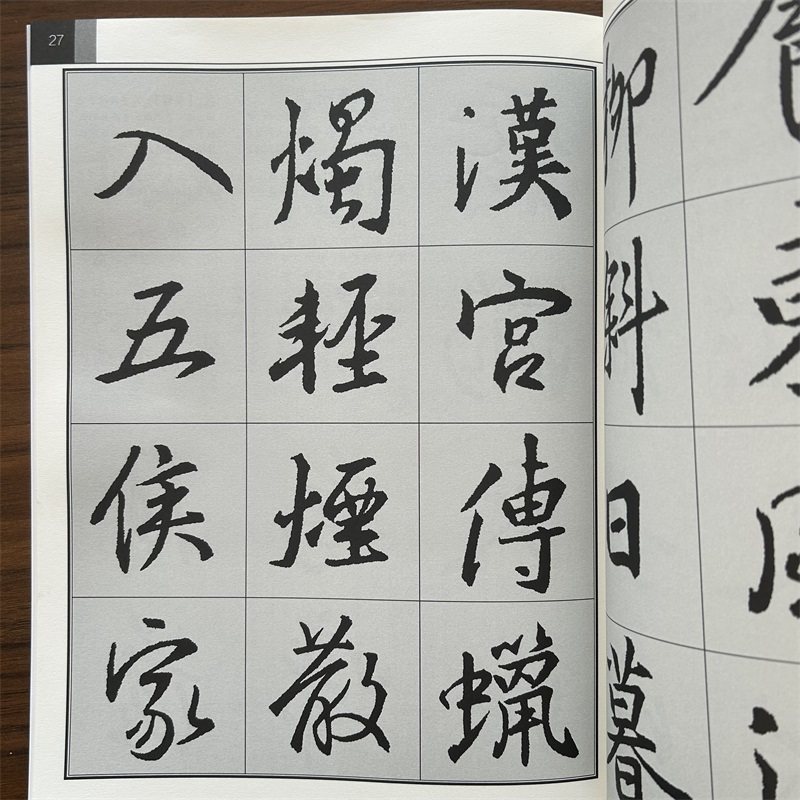 柳斜日暮
27
漢宮傳蠟
燭輕煙散
入五侯家